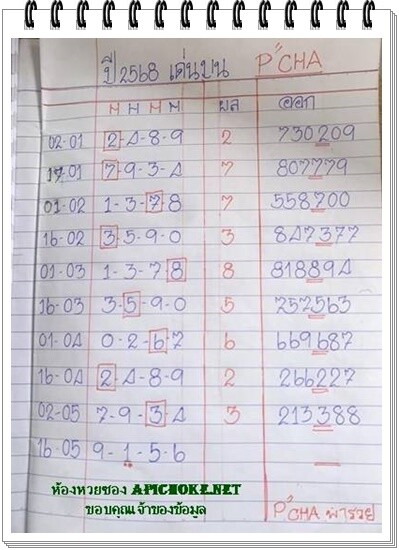 ปี 2568 เด่นบน P"CHA
H H H H ผล ออก
02-01 2-4-8-9 2 730209
17-01 7-9-3-4 7 807779
01-02 1-3-7-8 7 558700
16-02 3-5-9-0 3 847377
01-03 1-3-7-8 8 818894
16-03 3-5-9-0 5 257563
01-04 0-2-6-7 6 669687
16-04 2-4-8-9 2 266227
02-05 7-9-3-4 3 213388
16-05 9-1-5-6
ห้องหวยซอง APICHOKE.NET
ขอบคุณเจ้าของข้อมูล
P"CHA พารวย